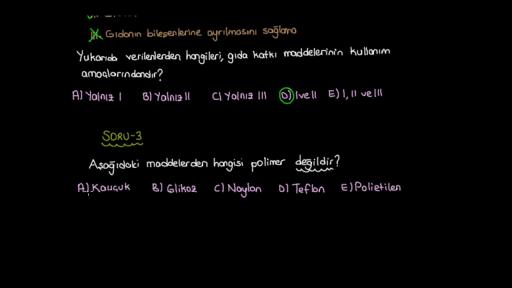 III. Gıdanın bileşenlerine ayrılmasını sağlama
Yukarıda verilenlerden hangileri, gıda katkı maddelerinin kullanım
amaçlarındandır?
A) Yalnız I B) Yalnız II C) Yalnız III D) I ve II E) I, II ve III
SORU-3
Aşağıdaki maddelerden hangisi polimer değildir?
A) Kauçuk B) Glikoz C) Naylon D) Teflon E) Polietilen